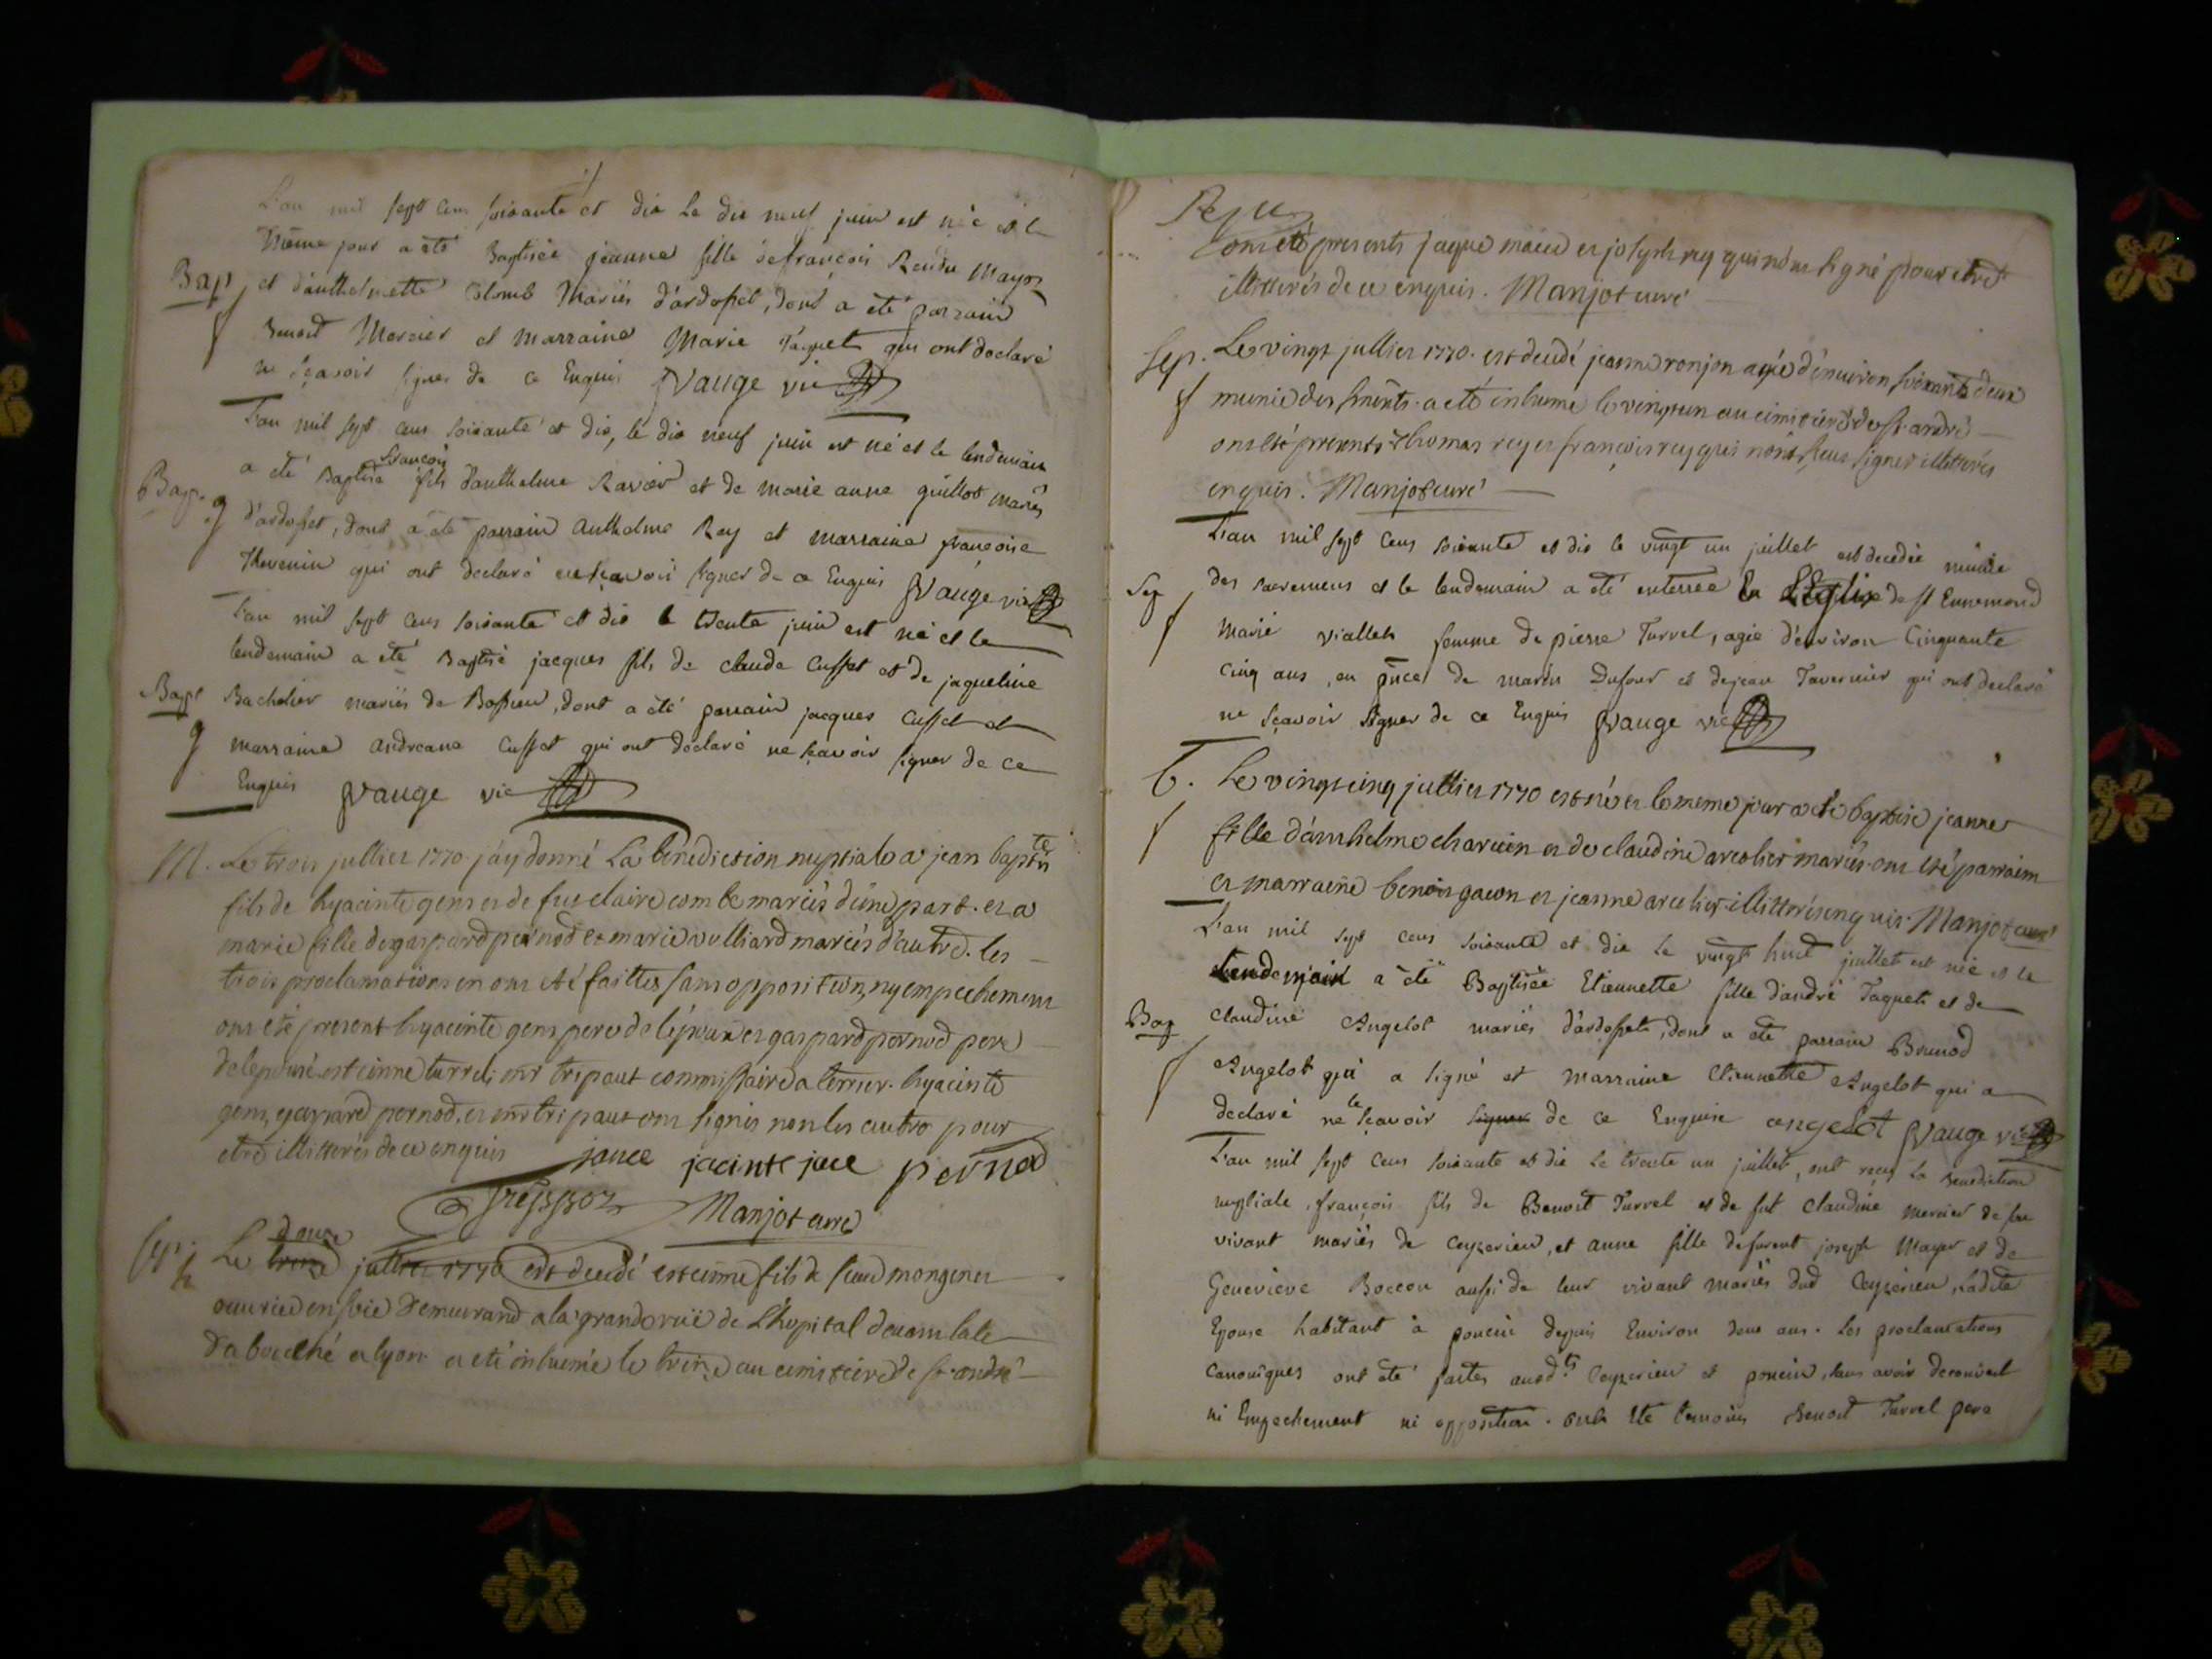 L'an mil sept cens soixante et dix le dix neuf juin est née et le
même jour a été Baptisée jeanne fille de françois Rendu Mayor
Bap et d'anthelmette Colomb Mariés d'ardosset, dont a été parrain
f Benoit Mercier et Marraine Marie Taquet qui ont declaré
ne sçavoir signer de ce Enquis Vauge vic
L'an mil sept cens soixante et dix, le dix neuf juin est né et le lendemain
françois
Bap. a été Baptisé fils d'anthelme Ravier et de marie anne guillot mariés
g d'ardosset, dont a été parrain anthelme Rey et marraine françoise
Thevenin qui ont declaré ne sçavoir signer de ce Enquis Vauge vic
L'an mil sept cens soixante et dix le trente juin est né et le
lendemain a été Baptisé jacques fils de claude Cusset et de jaqueline
Bapt Bachelier mariés de Bossieu, dont a été parrain jacques Cusset et
g marraine andreane Cusset qui ont declaré ne sçavoir signer de ce
Enquis Vauge vic
M. Le trois jullier 1770 j'ay donné La bénédiction nuptiale a jean bapte
fils de hyacinte gens et de fue claire combe mariés d'une part. et a
marie fille de gaspard pernod et marie vulliard mariés d'autre. les
trois proclamations en ont eté faittes sans opposition, ny empechement
ont eté present hyacinte gens pere de l'époux et gaspard pernod pere
de lepouse estienne turrel; mr tripaut commissaire a terrier. hyacinte
gens, gaspard pernod, et mr tripaut ont signés non les autre pour
etre illitterés de ce enquis jance jacinte jace pernod
Manjot curé
douze
Sep. Le treize jullier 1770 est decedé estienne fils de mongenet
h ouvrier en soie Demeurand a la grande ruë de L'hopital devant la
a lyon a eté inhumé le treize au cimitiere de st andré
ont eté presents jaque et joseph rey qui n'ont signé pour etre
illitterés de ce enquis. Manjot curé
Sep. Le vingt jullier 1770. est decedé jeanne ronjon agée d'environ soixante deux
f munie des sments. a eté inhumé le vingt un au cimitiere de st andré
ont eté presents thomas rey et françois rey qui n'ont sceu signer illitterés
enquis. Manjot curé
L'an mil sept cens soixante et dix le vingt un juillet est decedée munie
Sep des sacremens et le lendemain a été enterrée En L'Eglise de st Ennemond
f Marie viallet femme de pierre Turrel, agée d'environ Cinquante
Cinq ans, en pnce de martin Dufour et de jean Tavernier qui ont declaré
ne sçavoir signer de ce Enquis Vauge vic
b. Le vingt cinq jullier 1770 est né et le meme jour a eté baptisé jeanne
f fille d'anthelme charvin et de claudine arcelier mariés. ont eté parrain
et marraine benoit gacon et jeanne arcelier. illitterés enquis. Manjot curé
L'an mil sept cens soixante et dix le vingt huit juillet est née et le
lendemain a été Baptisée Etiennette fille d'andré Taquet et de
Bap Claudine Angelot mariés d'ardosset, dont a été parrain Brunod
f Angelot qui a signé et marraine Etiennette Angelot qui a
declaré ne le sçavoir signer de ce Enquise angelot Vauge vic
L'an mil sept cens soixante et dix le trente un juillet, ont reçu La Benediction
nuptiale, françois fils de Benoit Turrel et de fut Claudine mercier de son
vivant mariés de Ceyzerieu, et anne fille defunt joseph Mayer et de
Genevieve Boccon aussi de leur vivant mariés dud Ceyzerieu, Ladite
Epouse habitant à poncin depuis Environ deux ans. Les proclamations
canoniques ont été faites auxd.ts Ceyzerieu et poncin, sans avoir decouvert
ni Empechement ni opposition. ont eté temoins Benoit Turrel pere